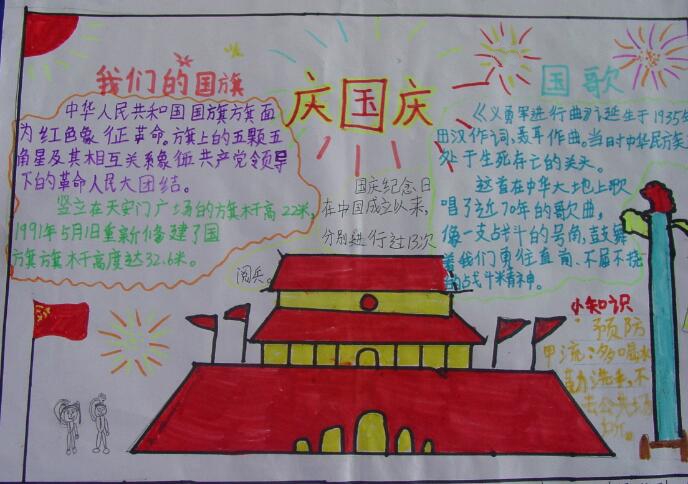 我们的国旗
中华人民共和国国旗旗面
为红色象征革命。旗上的五颗五
角星及其相互关系象征共产党领导
下的革命人民大团结。
竖立在天安门广场的旗杆高22米,
1991年5月1日重新修建了国
旗旗杆高度达32.6米。
庆国庆
国庆纪念日
在中国成立以来,
分别进行过13次
阅兵。
国歌
《义勇军进行曲》诞生于1935年
田汉作词,聂耳作曲。当时中华民族
处于生死存亡的关头。
这首在中华大地上歌
唱了近70年的歌曲,
像一支战斗的号角,鼓舞
着我们勇往直前、不屈不挠
的战斗精神。
小知识
预防
甲流:多喝水
勤洗手,不
去公共场
所。